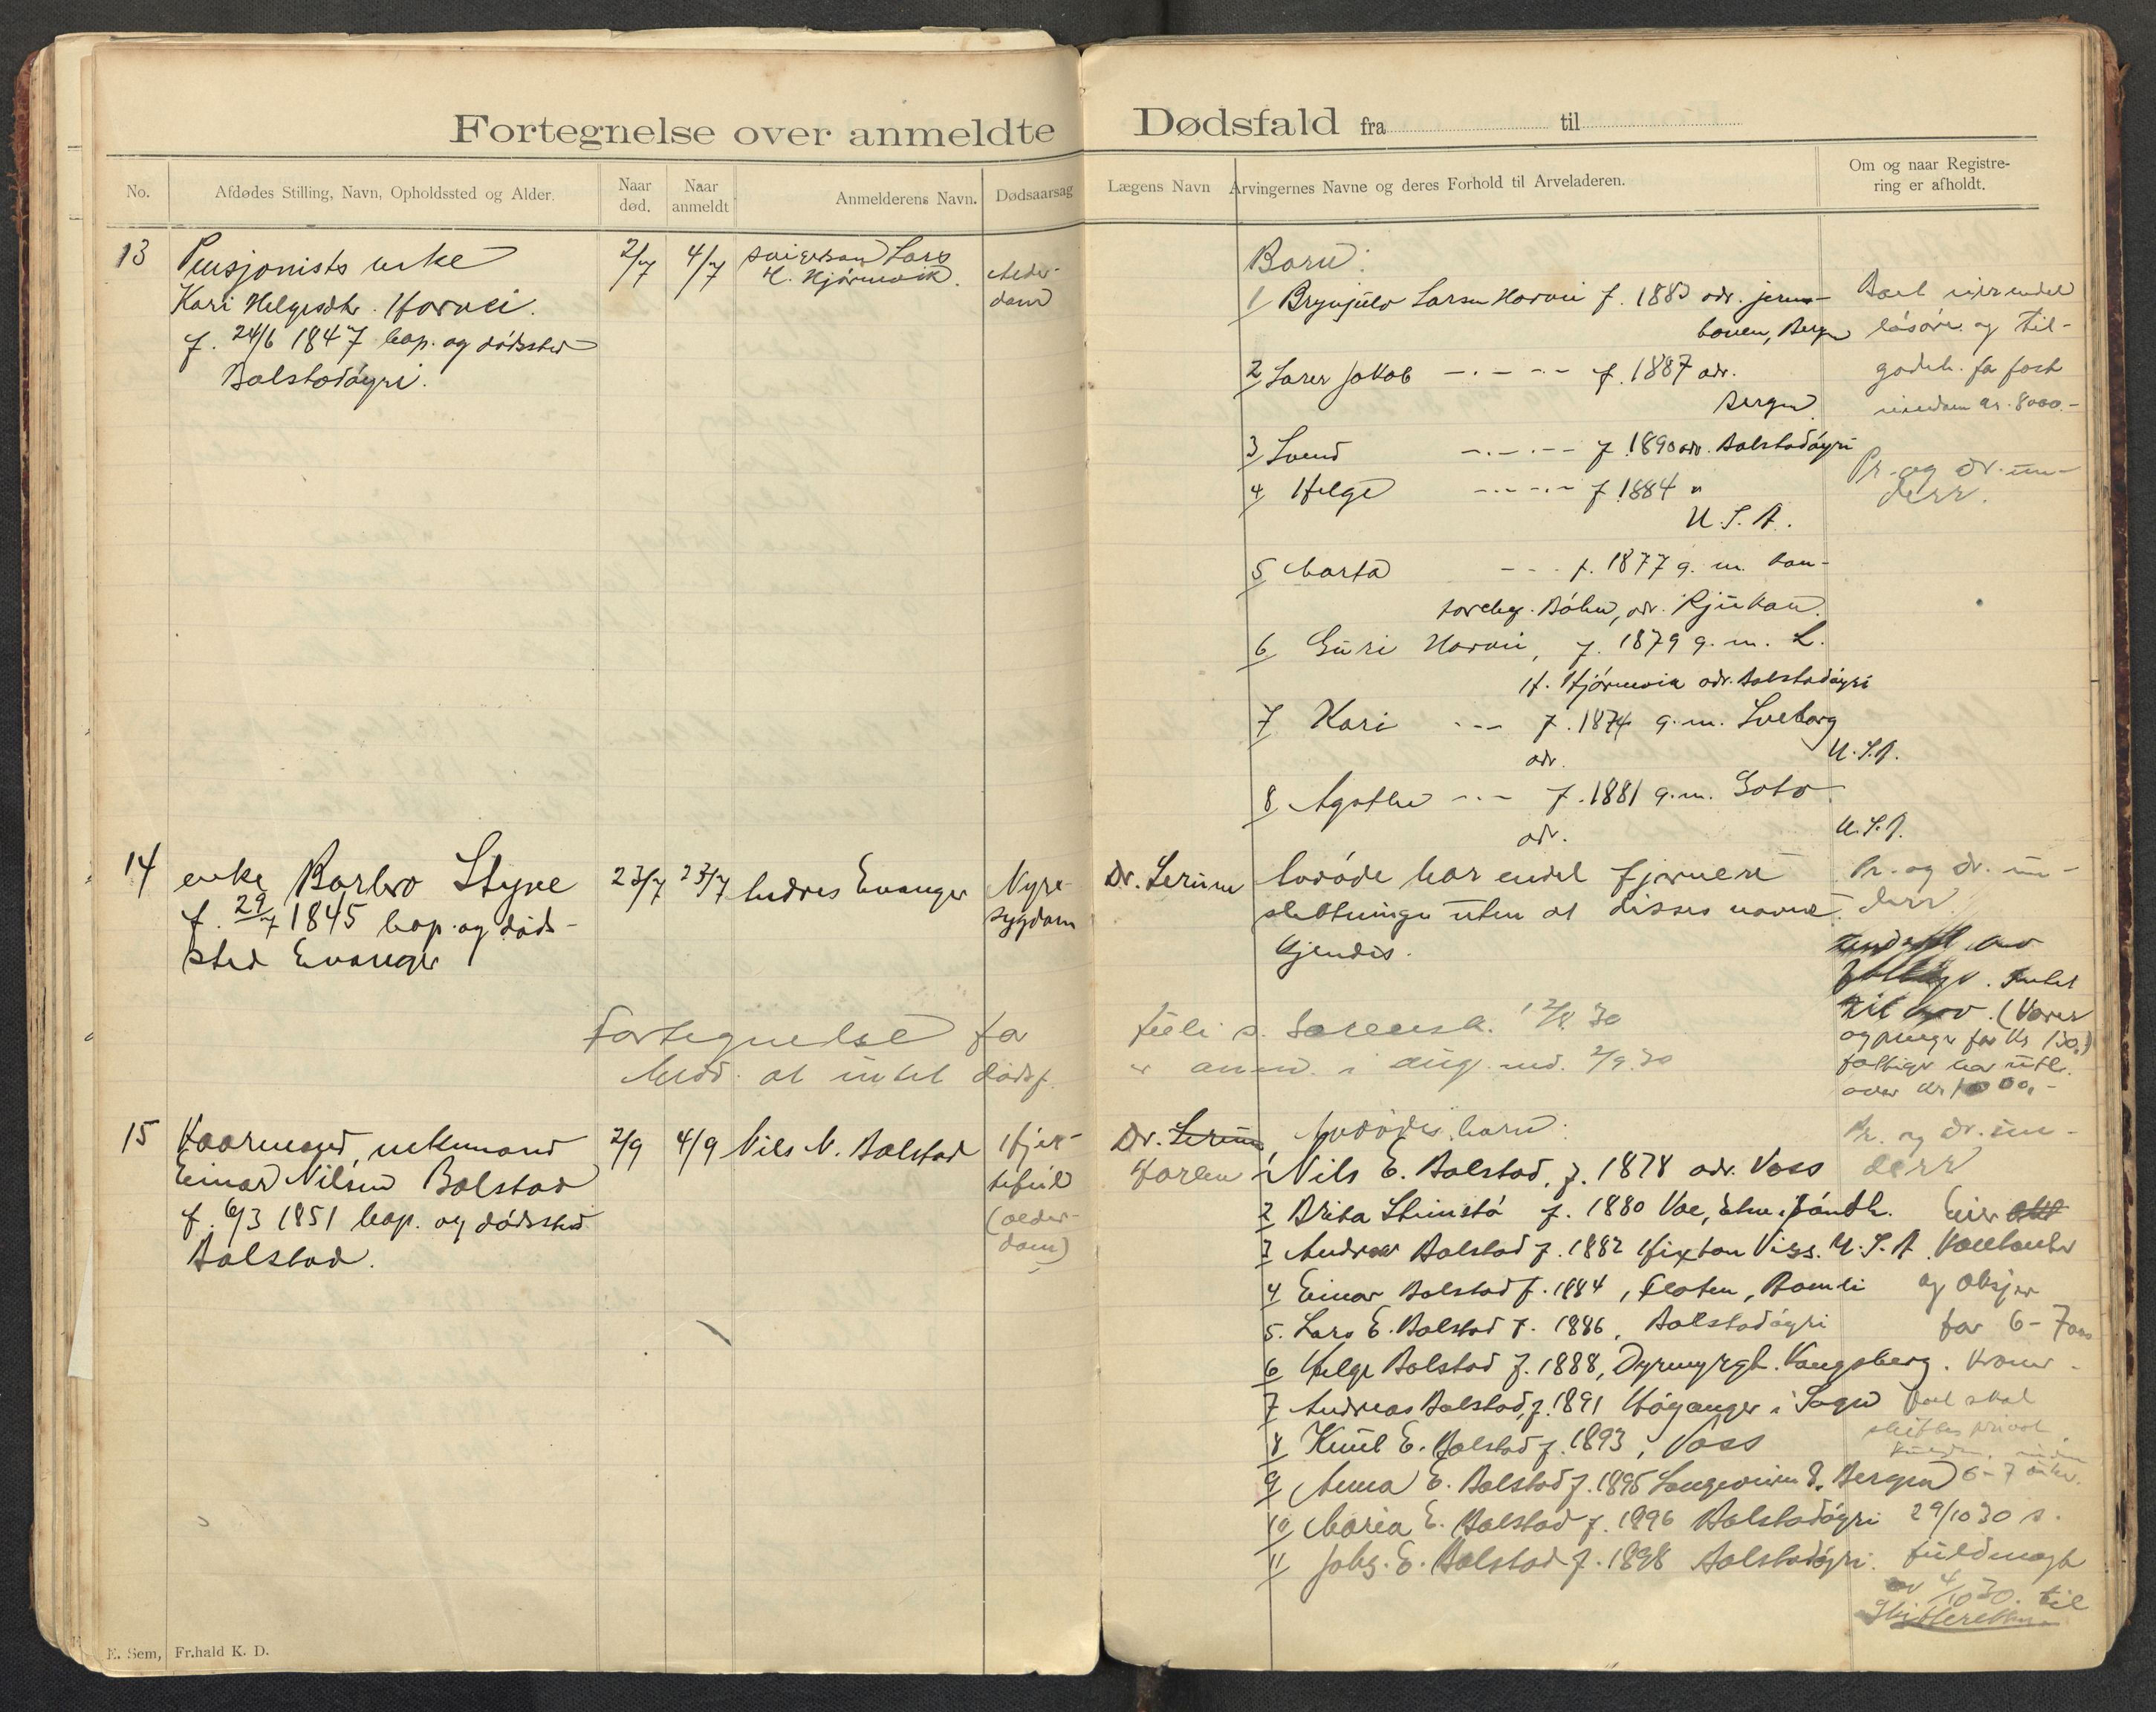 Fortegnelse over anmeldte Dødsfald fra til
No.
Afdødes Stilling, Navn, Opholdssted og Alder.
Naar død.
Naar anmeldt
Anmelderens Navn.
Dødsaarsag
Lægens Navn
Arvingernes Navne og deres Forhold til Arveladeren.
Om og naar Registre-
ring er afholdt.
13
Pensjonists enke
Kari Helgesdtr. Horvei.
f. 24/6 1847 bop. og dødssted
Bolstadøyri.
2/7
4/7
svigersøn Lars
H. Hjørnevik.
Alder-
dom
Born:
1 Brynjulv Larsen Horvei f. 1883 adr. jernb-
banen, Bergen
2 Lars Jakob -.- -.- f. 1887 adr.
Bergen
3 Svend -.-.-- f. 1890 adr. Bolstadøyri
4 Helge -.-.-.- f. 1884 "
U.S.A.
5 Marta - - - f. 1877 g. m. kon-
torchef. Bøhn, adr. Rjukan.
6 Guri Horvei, f. 1879 g. m. L.
H. Hjørnevik adr. Bolstadøyri
7 Kari -.-- f. 1874 g. m. Sveborg
adr. U.S.A.
8 Agathe -.-.- f. 1881 g. m. Goto
adr. U.S.A.
Boet eier endel
løsøre og til-
godeh. for
kr. 8000.-
Pr. og dr. un-
derr.
14
enke Barbro Styve
f. 29/7 1845 bop. og døds-
sted Evanger
23/7
23/7
Andres Evanger
Nyre-
sygdom
Dr. Lerum
Avdøde har endel fjernere
slektninger uten at disses navne
kjendes.
Pr. og dr. un-
derr.
Intet
(Varer
og penger for kr 150.)
fattigv. har utl.
over kr 1000,-
Fortegnelse fra juli s. Sorensk. 12/8 30
Medd. at intet dødsf. er anm. i aug. md. 2/9.30
15
Kaarmand, enkemand
Einar Nilsen Bolstad
f. 6/3 1851 bop. og dødssted
Bolstad.
2/9
4/9
Nils N. Bolstad
Hjer-
tefeil
(alder-
dom)
Dr. Lerum
Avdødes barn:
1 Nils E. Bolstad, f. 1878 adr. Voss
2 Brita Steinstø f. 1880
3 Andreas Bolstad f. 1882 Hixton Viss. U.S.A.
4 Einar Bolstad f. 1884, Floten, Bømli
5. Lars E. Bolstad f. 1886, Bolstadøyri
6 Helge Bolstad f. 1888, Dyrmyrgt. Kongsberg.
7 Andreas Bolstad, f. 1891 Høyanger i Sogn
8 Knut E. Bolstad f. 1893, Voss
9 Anna E. Bolstad f. 1895 Bergen
10 Maria E. Bolstad f. 1896 Bolstadøyri
11 Johs. E. Bolstad f. 1898 Bolstadøyri.
Pr. og dr. un-
derr
Eier
kontanter
og aksjer
for 6-7000
kroner.
Boet skal
skiftes privat
29/10 30 s.
fuldmagt
av 4/10 30. til
Skifteretten
E. Sem, Fr.hald K. D.